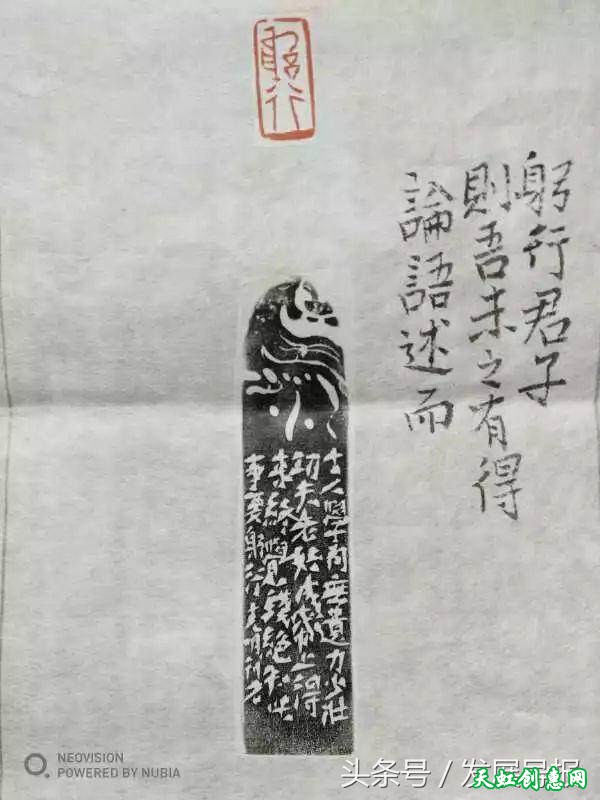 躬行
躬行君子
則吾未之有得
論語述而
古人學問無遺力少壯
功夫老始成紙上得
來終覺淺絕知此
事要躬行
NEOVISION
POWERED BY NUBIA
头条号/发展导报
天虹创惠网